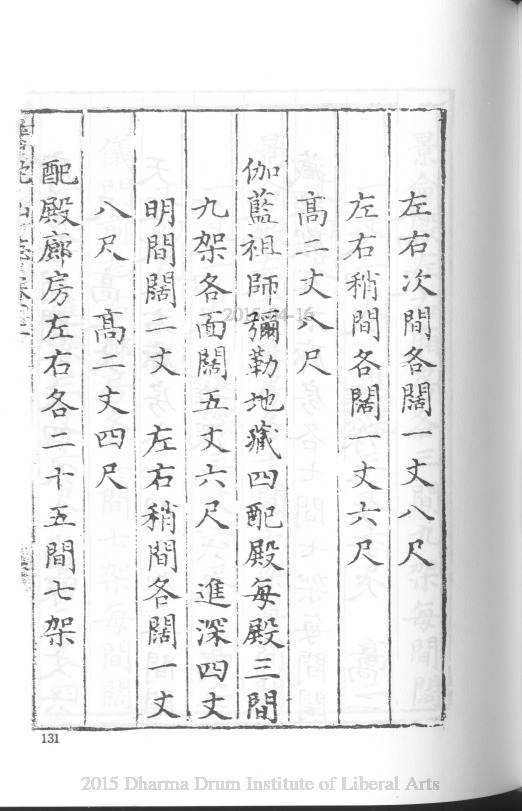 左右次間各闊一丈八尺
左右稍間各闊一丈六尺
高二丈八尺
伽藍祖師彌勒地藏四配殿每殿三間
九架各面闊五丈六尺 進深四丈
明間闊二丈 左右稍間各闊一丈
八尺 高二丈四尺
配殿廊房左右各二十五間七架
131
2015 Dharma Drum Institute of Liberal Arts